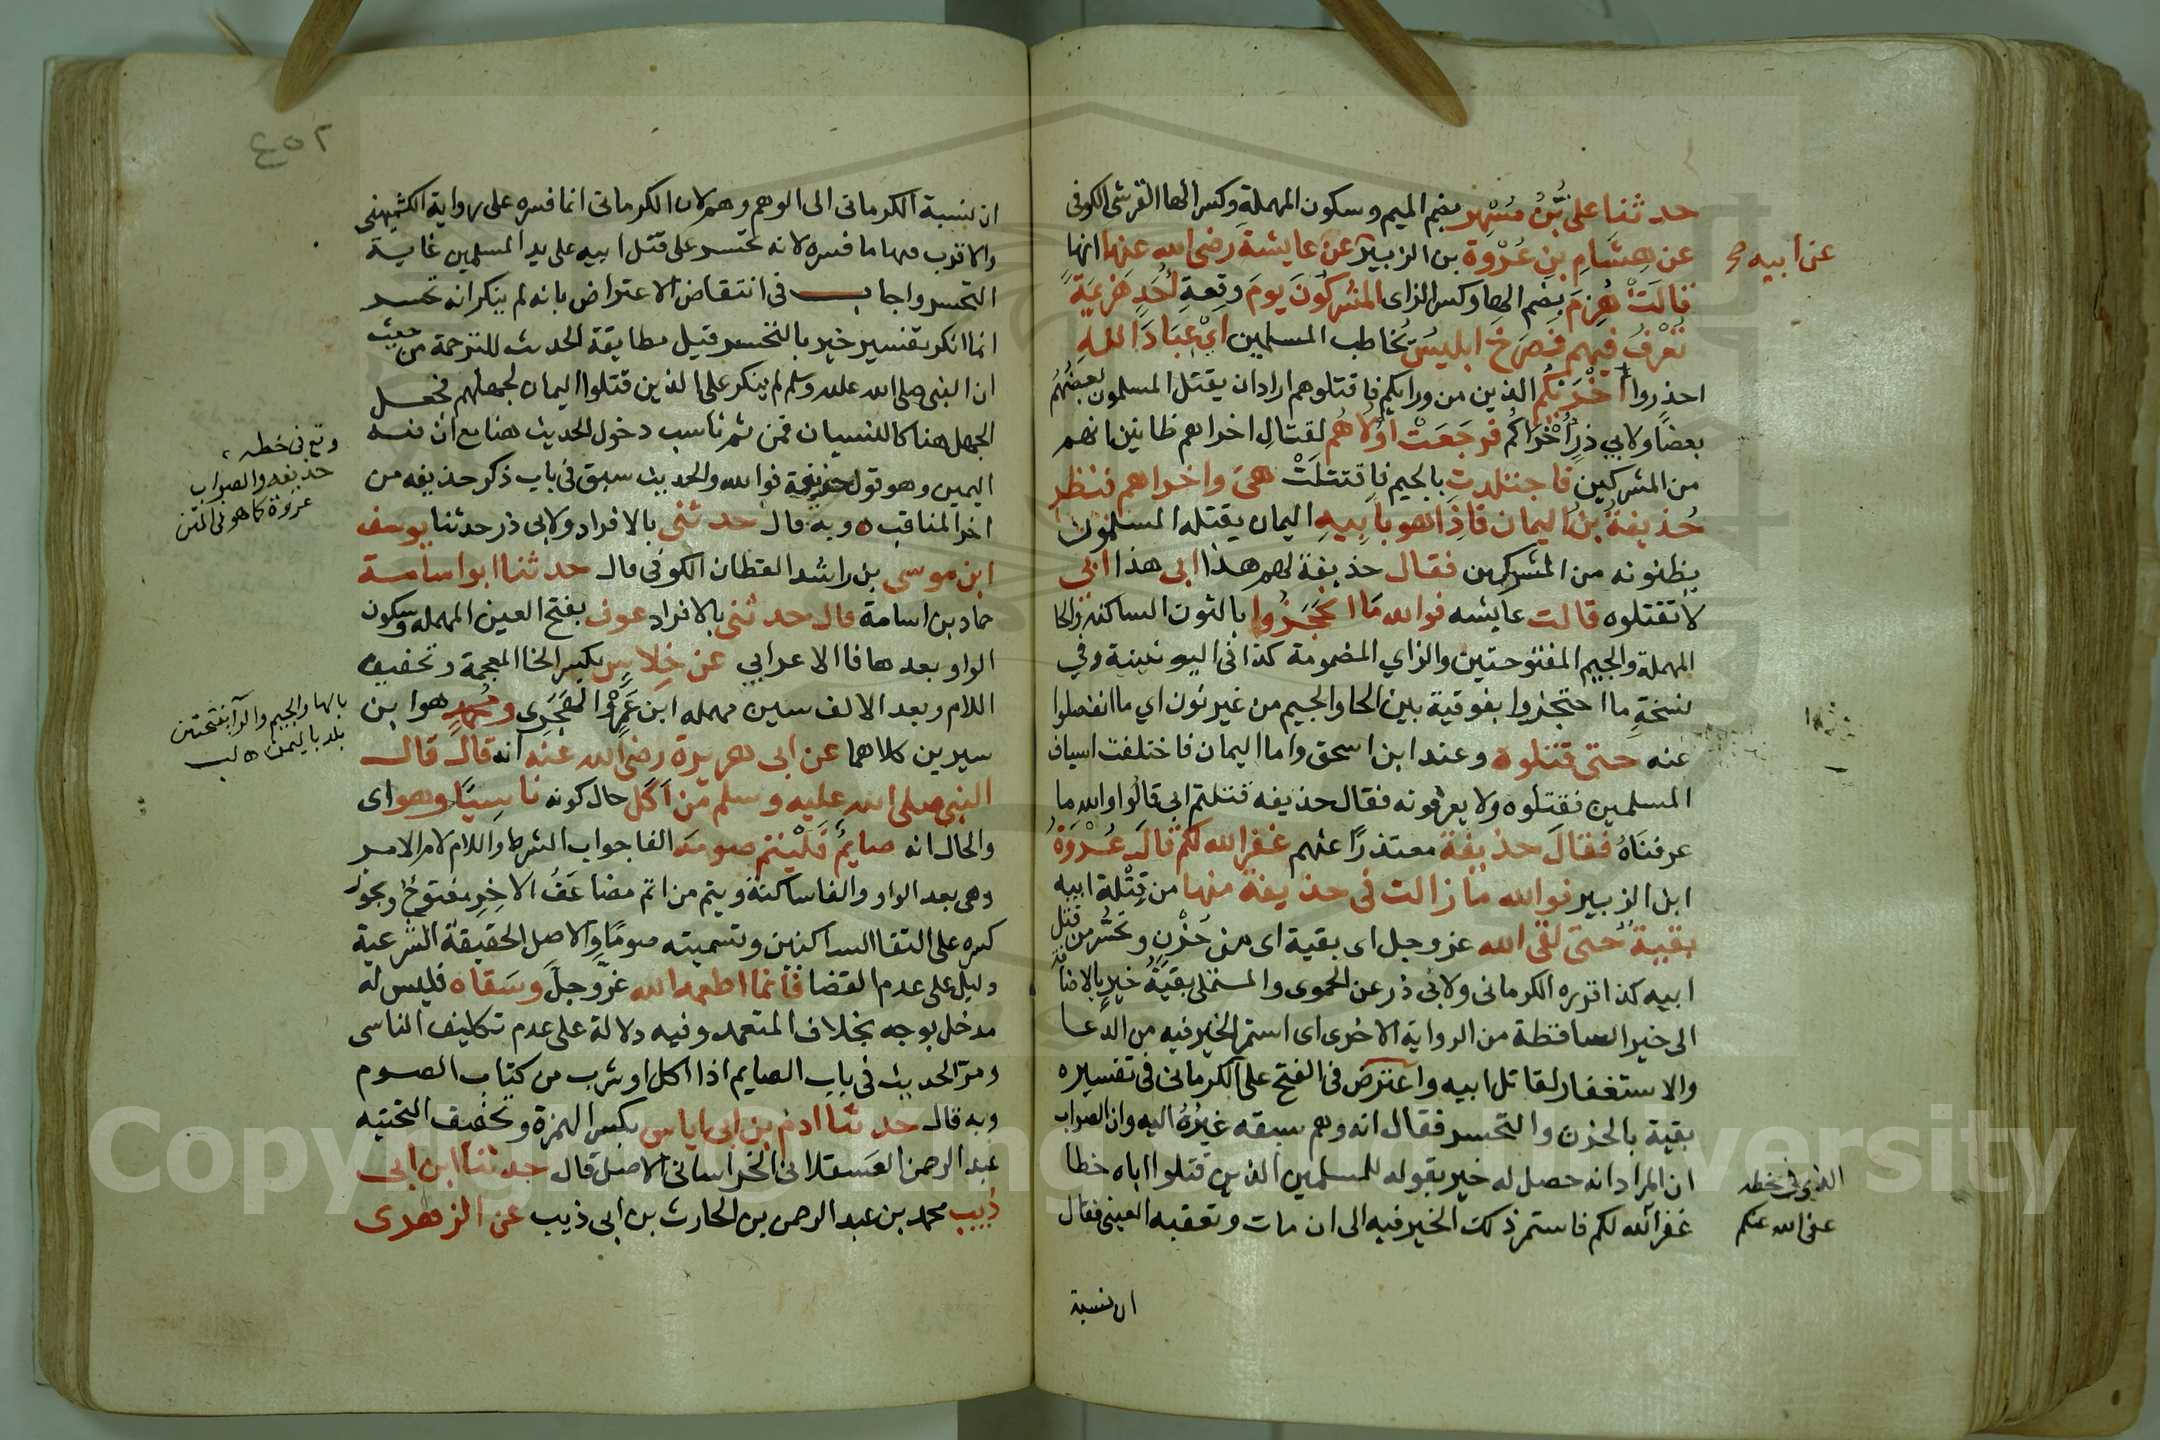 حدثنا علي بن مُسْهِر بضم الميم وسكون المهملة وكسر الها القرشى الكوفى
عن هِشَامِ بنِ عُرْوة بن الزبير عن عايشة رضى الله عنها انها
عن أبيه صح
قالَتْ هُزِمَ بضم الها وكسر الزاى المشركُونَ يومَ وقعةِ أُحُدٍ هَزِيمَةً
تُعْرَفُ فيهم فصَرَخَ ابليسُ يُخاطب المسلمين اي عِبَادَ الله
احذروا أُخْرَيكُم الذين من ورائكم فاقتلوهم اراد ان يقتل المسلمون بعضُهُم
بعضًا ولابي ذرٍ أُخْرَاكُم فرجَعَتْ أُولَاهُم لقتالِ اخراهم ظانين انهم
من المشركين فاجتلدت بالجيم فاقتتلَتْ هىَ واخراهم فنظر
حُذيفةُ بنُ اليمان فاذا هو بأبيهِ اليمان يقتله المسلمون
يظنونه من المشركين فقال حذيفة لهم هذا ابى هذا ابي
لا تقتلوه قالت عايشه فوالله مَا انحَجَزُوا بالنون الساكنه والحا
المهملة والجيم المفتوحتين والزاي المضمومة كذا فى اليونينية وفي
نسخةٍ ما احتجزوا بفوقية بين الحا والجيم من غير نون اي ما انفصلوا
عنه حتى قتلوه وعند ابن اسحق واما اليمان فاختلفت اسياف
المسلمين فقتلوه ولا يعرفونه فقال حذيفه قتلتم ابى قالوا والله ما
عرفنَاهُ فقالَ حذيفة معتذرًا عنهم غفر الله لكم قالَ عُرْوَةُ
ابن الزبير فوالله ما زالت فى حذيفة منها من قِتْلة ابيه
بقيةٌ حتى لقى الله عز وجل اى بقية اى من حُزْنٍ وتحسُّرٍ من قتل
ابيه كذا قرره الكرمانى ولابى ذر عن الحموى والمستملى بقيةُ خيرٍ بالاضافة
الى خير الساقطة من الرواية الاخرى اى استمر الخير فيه من الدعا
والاستغفار لقاتل ابيه واعترض فى الفتح على الكرمانى فى تفسيره
بقية بالحزن والتحسر فقال انه وهم سبقه غيرُهُ اليه وان الصواب
ان المراد انه حصل له خير بقوله للمسلمين الذين قتلوا اباه خطا
غفر الله لكم فاستمر ذلك الخير فيه الى ان مات وتعقبه العينى فقال
الذى فى خطه
عفى الله عنكم
ان نسبة
٢٥٤
ان نسبة الكرمانى الى الوهم وهم لان الكرمانى انما فسره على رواية الكشميهنى
والاقرب فيها ما فسره لانه تحسر على قتل ابيه على يد المسلمين غاية
التحسر واجاب فى انتقاض الاعتراض بانه لم ينكر انه تحسر
انما انكر تفسير خير بالتحسر قيل مطابقة الحديث للترجمة من حيث
ان النبى صلى الله عليه وسلم لم ينكر على الذين قتلوا اليمان لجهلهم فجعل
الجهل هنا كالنسيان فمن ثم ناسب دخول الحديث هنا مع ان فيه
اليمين وهو قول حذيفة فوالله والحديث سبق فى باب ذكر حذيفه من
وقع فى خطه
حذيفه والصواب
عروة كما هو فى المتن
اخر المناقب ه وبه قال حدثنى بالافراد ولابى ذر حدثنا يوسف
ابن موسى بن راشد القطان الكوفى قال حدثنا ابو اسامة
حماد بن اسامة قال حدثنى بالافراد عوف بفتح العين المهمله وسكون
الواو بعدها فا الاعرابي عن خِلاسٍ بكسر الخا المعجمة وتخفيف
اللام وبعد الالف سين مهمله ابن عَمْرٍو الهَجَرِى ومُحمدٍ هو ابن
بالها والجيم والرآ بفتحتين
بلد باليمن
سيرين كلاهما عن ابى هريرة رضى الله عنه انه قال قال
النبى صلى الله عليه وسلم مَن اكَل حال كونه ناسِيًا وهو اى
والحال انه صايمٌ فَلْيُتم صومَه الفا جواب الشرط واللام لام الامر
وهى بعد الواو والفا ساكنة ويتم من اتم مضاعَفُ الاخِرِ مفتوحٌ ويجوز
كسره على التقا الساكنين وتسميته صومًا والاصل الحقيقة الشرعية
دليل على عدم القضا فأنما اطعمه الله عزّ وجلّ وسَقاه فليس له
مدخل بوجه بخلاف المتعمد وفيه دلالة على عدم تكليف الناسى
ومرّ الحديث فى باب الصايم اذا اكل او شرب من كتاب الصوم
وبه قال حدثنا ادم بن ابى اياس بكسر الهمزة وتخفيف التحتيه
عبد الرحمن العَسقلانى الخراسانى الاصل قال حدثنا ابن ابى
ذيب محمد بن عبد الرحمن بن الحارث بن ابى ذيب عن الزهرى
Copyright © King Saud University